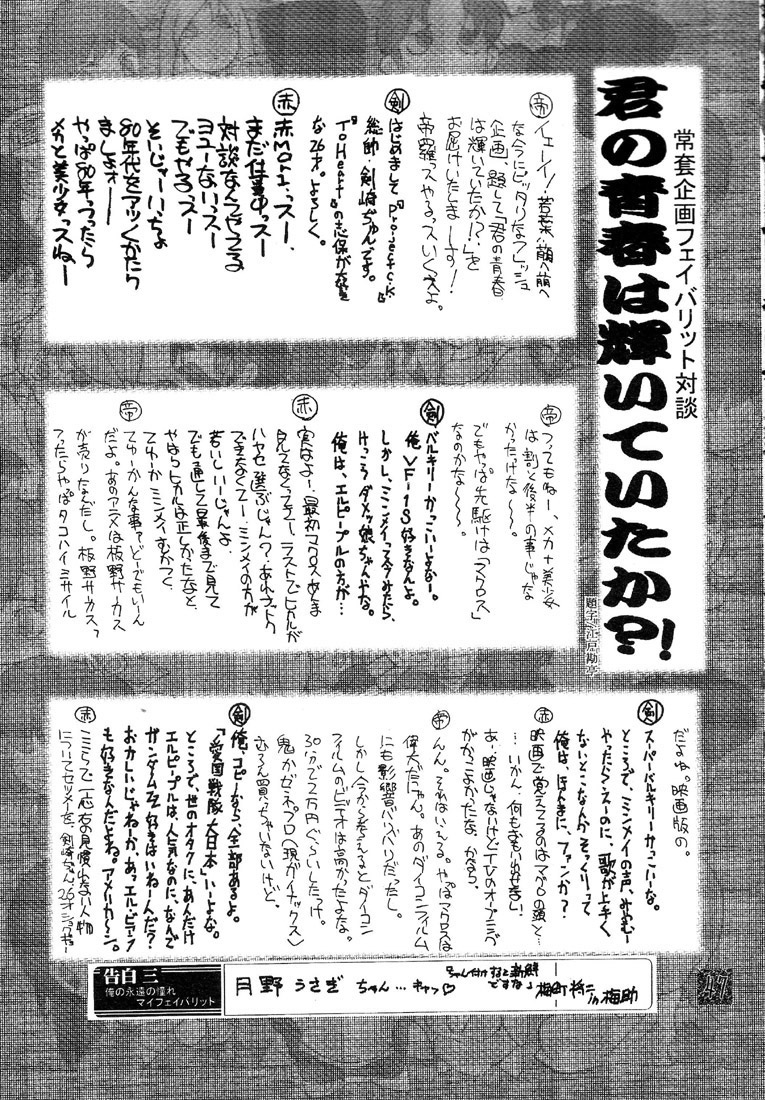 常套企画フェイバリット対談
君の青春は輝いていたか?!
題字・江戸勘亭
帝
イェーイ!若葉萌へ萌へ
な今にピッタリなフレッシュ
企画、題して「君の青春
は輝いていたか!?」を
お届けいたしまーす!
帝羅ッスやるッスいくスよ。
剣
はじめまして『Project.k』
総帥・剣崎ぢゅんです。
『ToHeart』の志保が大好き
な26才。よろしく。
赤
赤Moriっスー、
まだ仕事中っスー
対談なんてやってる
ヨユーないっスー
でもやるっスー
そいじゃーいっちょ
80年代をアツくかたり
ましょォー
やっぱ80年つったら
メカと美少女っスねー
帝
つってもねー、メカ+美少女
は割と後半の事じゃな
かったけな〜〜。
でもやっぱ先駆けは「マクロス」
なのかな〜〜〜。
剣
バルキリーかっこいーよなー。
俺VF-1S好きなんよ。
しかし、ミンメイって今みたら、
けっこうダメッ娘ちゃんやな。
俺は、エルピープルの方が…
赤
実はよー、最初マクロスあんま
見てなくってよー、ラストでヒカルが
ハヤセ選ぶじゃん?あれナットク
できなくてよー、ミンメイの方が
若いしいーじゃんよ、
でも通して1〜最後まで見て
やはりヒカルは正しかったなと、
てゆーかミンメイ、むかつく、
帝
てゆーかんな事てどーでもいーん
だよ。あのアニメは板野サーカス
が売りなんだし。板野サーカス、
つったらやっぱタコハイミサイル
だよね。映画版の。
剣
スーパーバルキリーかっこいーな。
ところで、ミンメイの声、みやむー
やったらえーのに、歌が上手く
ないとこなんかそっくりって
俺は、ほんまに、ファンか?
赤
映画で覚えてるのはマクロの頭と…
…いかん、何もおもい出せない
あ、映画じゃないけどTVのオープニング
がかっこよかったな、かなり、
帝
んん。それはいえる。やっぱマクロスは
偉大だゃん。あのダイコンフィルム
にも影響バリバリだったし。
しかし今から考えるとダイコン
フィルムのビデオは高かったよな。
30分で2万円ぐらいしたっけ。
鬼かゼネプロ(現ガイナックス)
もちろん買っちゃいないけど。
剣
俺、コピーなら、全部あるよ。
「愛国戦隊大日本」いーよな。
ところで、世のオタクに、あんだけ
エルピープルは、人気なのに、なんで
ガンダムZZ好きはいねーんだ?
おかしいじゃねーか。あっエル・ビアンノ
も好きなんだよね。アメリカ〜ン。
赤
ここらで一応お見慣れない人物
についてセツメーを、剣崎ぢゅん26才シグやー
告白 三
俺の永遠の憧れ
マイフェイバリット
月野うさぎちゃん…キャッ♡
ちゃん付けすると新鮮
ですなぁ
梅助